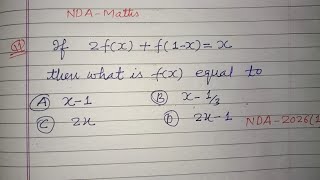 NDA-Maths
Q) If 2f(x) + f(1-x) = x
then what is f(x) equal to
(A) x-1 (B) x-1/3
(C) 2x (D) 2x-1 NDA-2026(1